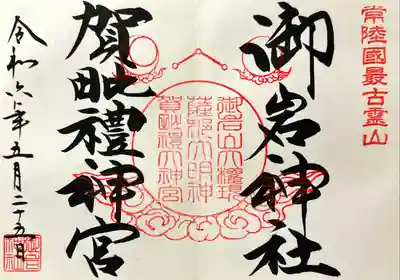 常陸國最古霊山
御岩神社
御岩山大権現
薩都大明神
賀毗禮大神宮
賀毗禮神宮
令和六年五月二十五日